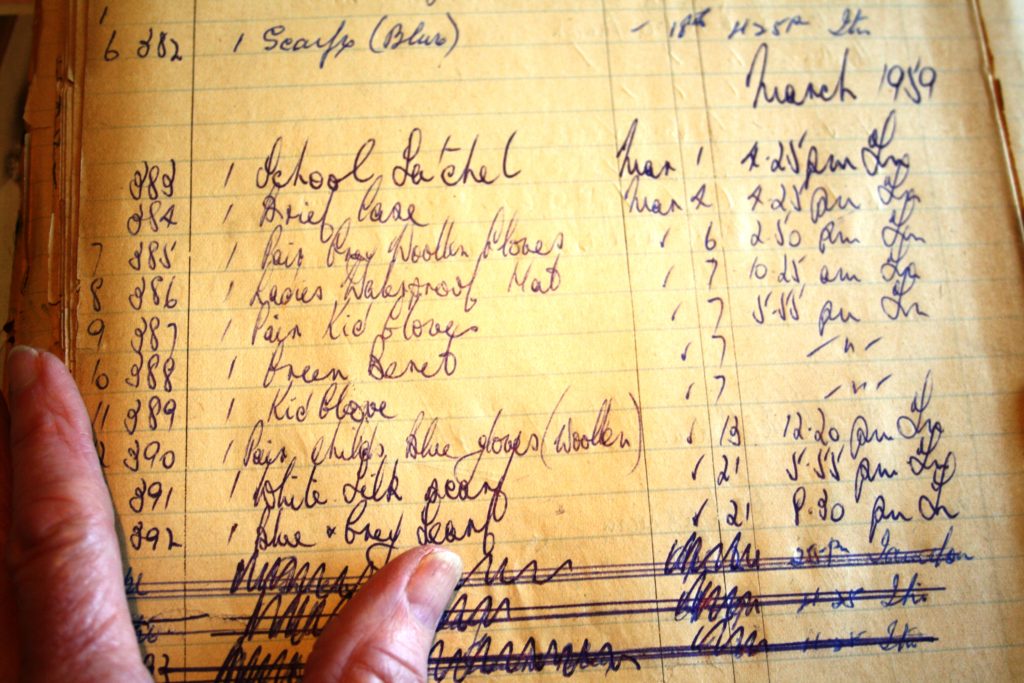 1
6 382 1 Scarfs (Blue) - 18th 4 25P
March 1959
383 1 School Satchel Mar 1 4.25 pm Ln
384 1 Brief Case Mar 4 4.25 pm Ln
7 385 1 Pair Grey Woollen Gloves " 6 2.50 pm Ln
8 386 1 Ladies Waterproof Hat " 7 10.25 am Ln
9 387 1 Pair Kid Gloves " 7 5.55 pm Ln
10 388 1 Green Beret " 7 - " -
11 389 1 Kid Glove " 7 - " -
2 390 1 Pair Childs Blue gloves (Woollen) " 13 12.20 pm Ln
391 1 White Silk scarf " 21 5.55 pm Ln
392 1 Blue & Grey Scarf " 21 8.30 pm Ln